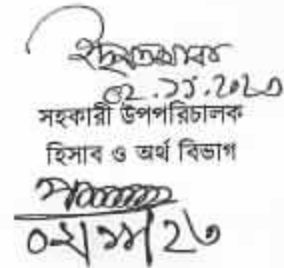 ০২.১১.২০২৩
সহকারী উপপরিচালক
হিসাব ও অর্থ বিভাগ
০২/১১/২৩